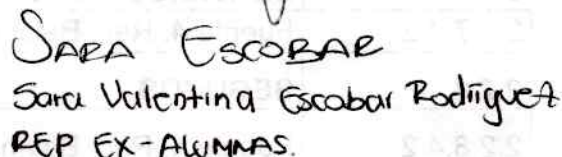 SARA ESCOBAR
Sara Valentina Escobar Rodríguez
REP EX-ALUMNAS.